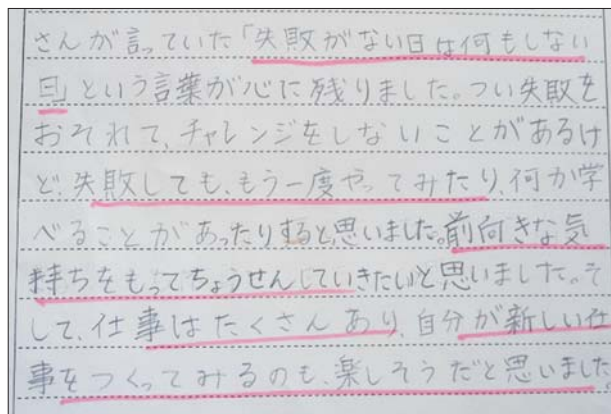 さんが言っていた「失敗がない日は何もしない
日」という言葉が心に残りました。つい失敗を
おそれて、チャレンジをしないことがあるけ
ど、失敗しても、もう一度やってみたり、何か学
べることがあったりすると思いました。前向きな気
持ちをもってちょうせんしていきたいと思いました。そ
して、仕事はたくさんあり、自分が新しい仕
事をつくってみるのも、楽しそうだと思いました